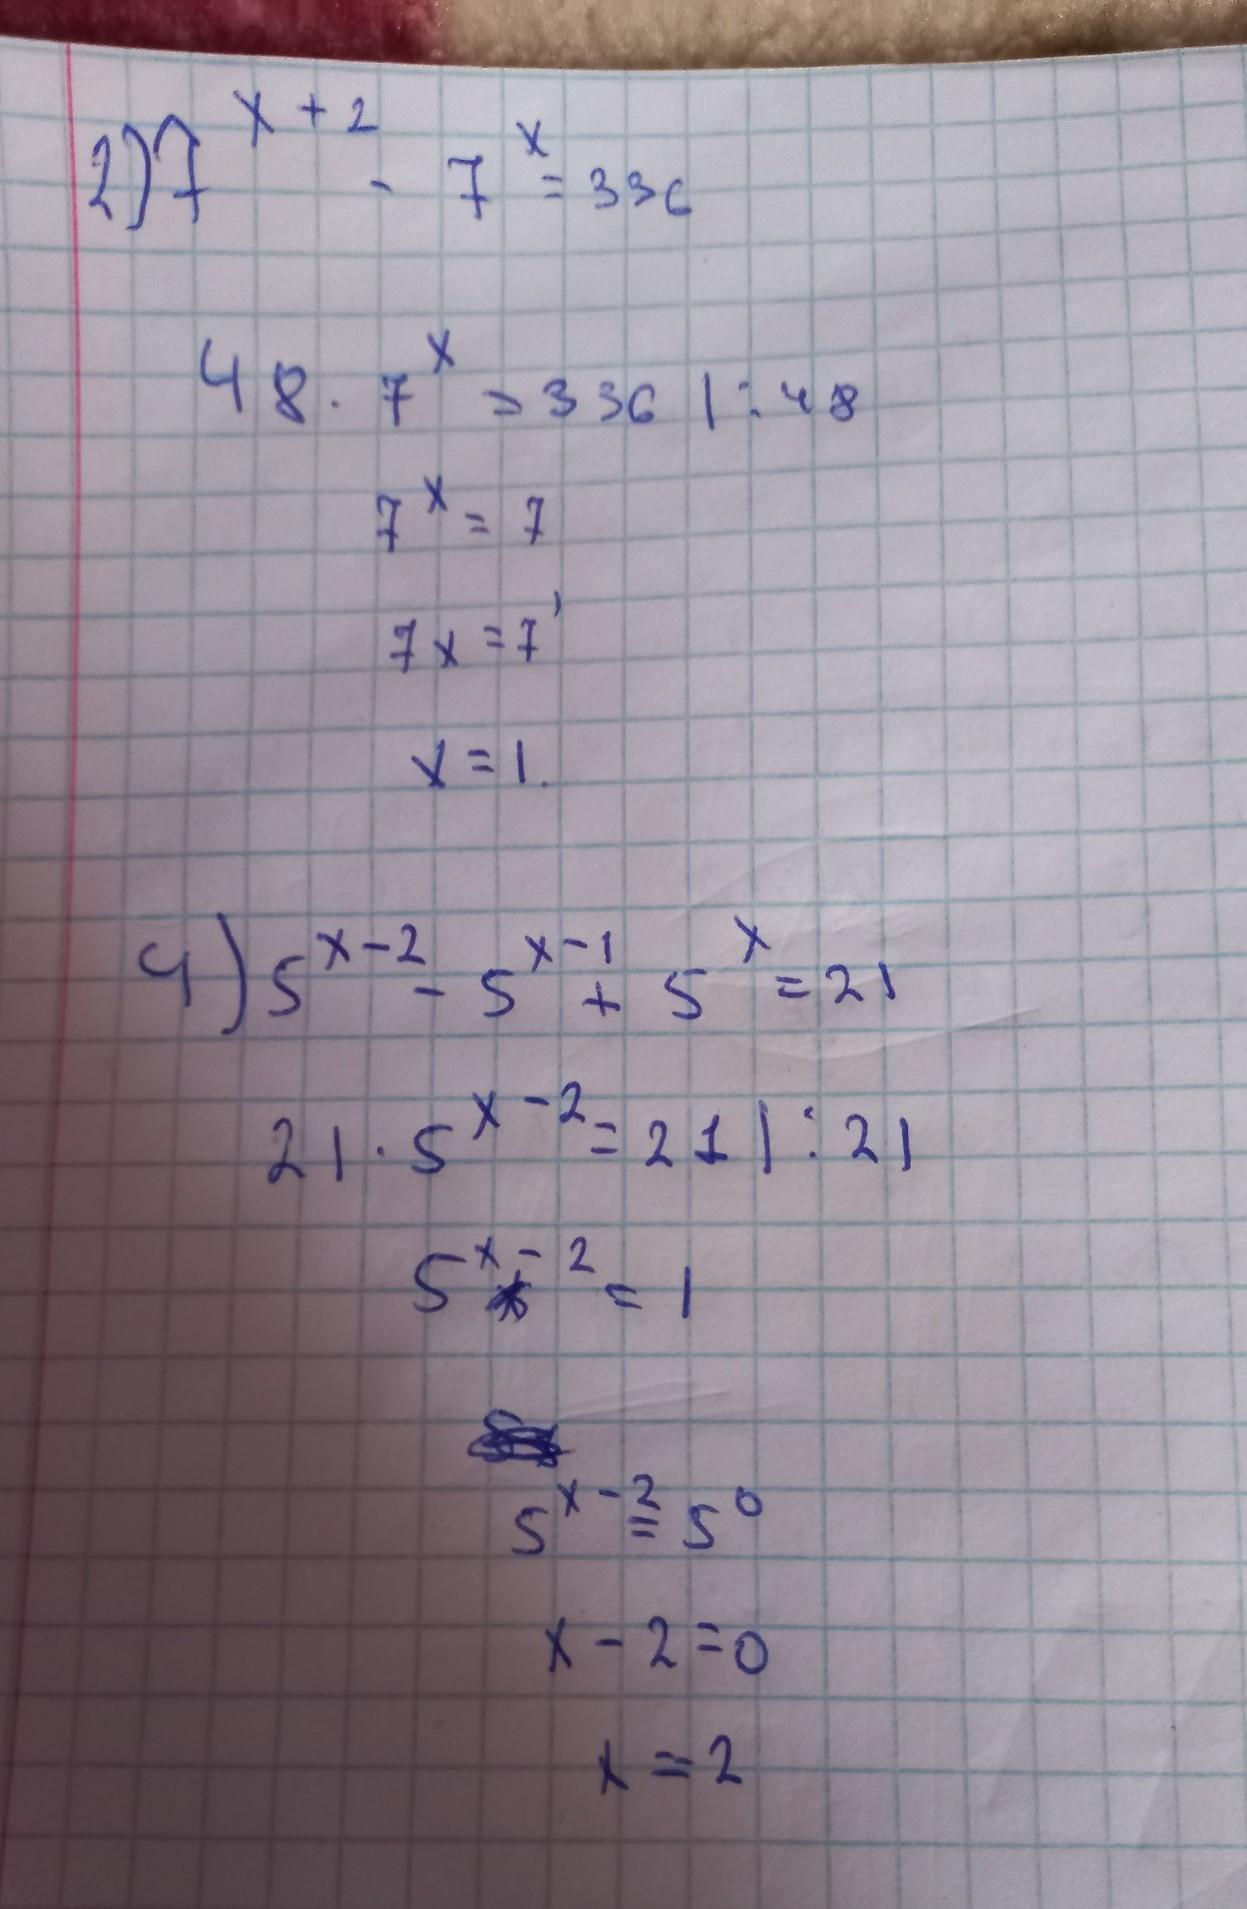 2) 7^{x+2} - 7^x = 336
48 · 7^x = 336 | : 48
7^x = 7
7x = 7^1
x = 1.
4) 5^{x-2} - 5^{x-1} + 5^x = 21
21 · 5^{x-2} = 21 | : 21
5^{x-2} = 1
5^{x-2} = 5^0
x - 2 = 0
x = 2